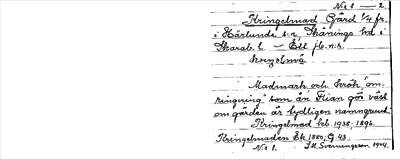 No 1 — 2.
Kringelmad Gård 1/4 fr.
i Härlunda s:n, Skånings hd i
Skarab. l. — Ett jb. n:r.
Madmark och krök, "om-
ringning" som ån Flian gör väst
om gården är tydligen namngrund
Kringelmad kb. 1938. 1896.
Kringelmaden Ek 1880, G 43.
No 1. J.K. Svenungsson 1904.